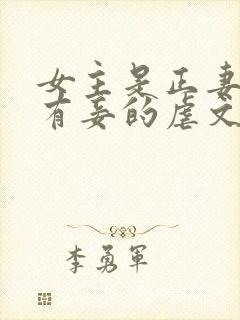 女主是正妻
有妾的虐文
李勇军